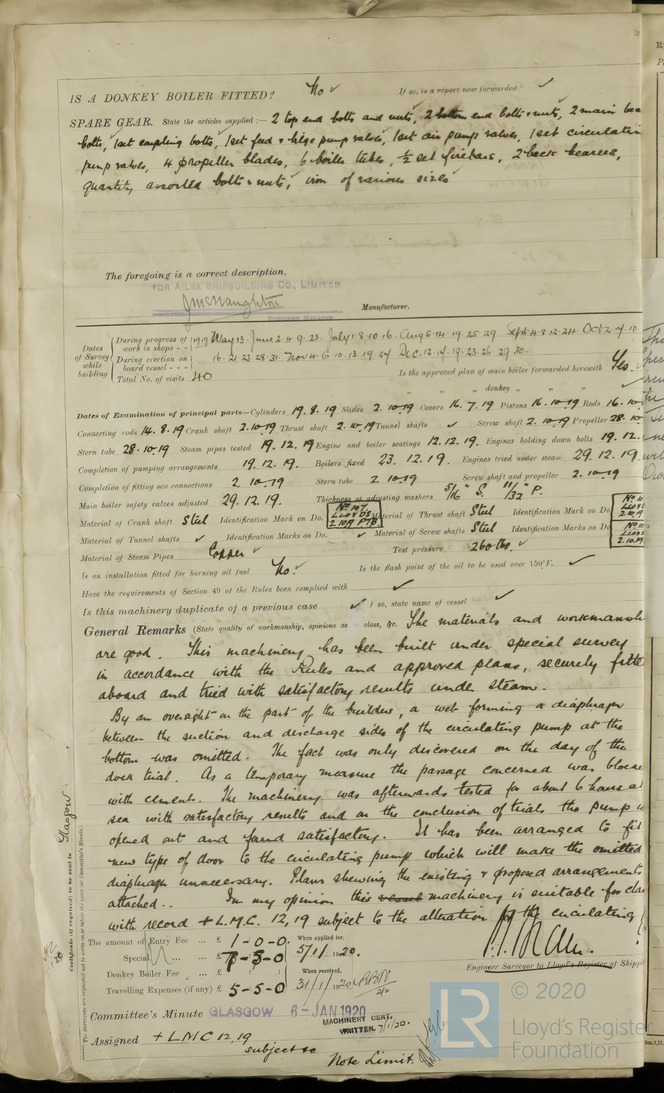 IS A DONKEY BOILER FITTED? No ✓ If so, is a report now forwarded? ✓
SPARE GEAR. State the articles supplied :— 2 top end bolts and nuts, 2 bottom end bolts & nuts, 2 main bea
bolts, 1 set coupling bolts, 1 set feed & bilge pump valves, 1 set air pump valves, 1 set circulatin
pump valves, 4 propeller blades, 6 boiler tubes, ½ set firebars, 2 back bearers,
quantity assorted bolts & nuts, iron of various sizes
The foregoing is a correct description,
FOR AILSA SHIPBUILDING CO., LIMITED
J McNaughton Manufacturer.
Dates of Survey while building
During progress of work in shops - - 1919 May 13. June 2. 4. 9. 23. July 1. 8. 10. 16. Aug 5. 14. 19. 25. 29. Sept 4. 8. 12. 24. Oct 2. 7. 10.
During erection on board vessel - - - 16. 21. 23. 28. 31. Nov 4. 6. 10. 13. 19. 24. Dec. 12. 17. 19. 23. 26. 29. 30.
Total No. of visits 40 Is the approved plan of main boiler forwarded herewith Yes.
" " " donkey " "
Dates of Examination of principal parts—Cylinders 19. 8. 19 Slides 2. 10. 19 Covers 16. 7. 19 Pistons 16. 10. 19 Rods 16. 10.
Connecting rods 14. 8. 19 Crank shaft 2. 10. 19 Thrust shaft 2. 10. 19 Tunnel shafts ✓ Screw shaft 2. 10. 19 Propeller 28. 10.
Stern tube 28. 10. 19 Steam pipes tested 19. 12. 19 Engine and boiler seatings 12. 12. 19. Engines holding down bolts 19. 12.
Completion of pumping arrangements 19. 12. 19. Boilers fixed 23. 12. 19. Engines tried under steam 29. 12. 19.
Completion of fitting sea connections 2. 10. 19 Stern tube 2. 10. 19 Screw shaft and propeller 2. 10. 19
Main boiler safety valves adjusted 29. 12. 19. Thickness of adjusting washers 5/16 S. 11/32 P.
Material of Crank shaft Steel Identification Mark on Do. No 107 LLOYDS 2.10.19 PTB Material of Thrust shaft Steel Identification Mark on Do.
Material of Tunnel shafts ✓ Identification Marks on Do. ✓ Material of Screw shafts Steel Identification Marks on Do.
Material of Steam Pipes Copper ✓ Test pressure 260 lbs. ✓
Is an installation fitted for burning oil fuel No. ✓ Is the flash point of the oil to be used over 150°F. ✓
Have the requirements of Section 49 of the Rules been complied with ✓
Is this machinery duplicate of a previous case ✓ If so, state name of vessel ✓
General Remarks (State quality of workmanship, opinions as class, &c. The materials and workmansh
are good. This machinery has been built under special survey
in accordance with the Rules and approved plans, securely fitte
aboard and tried with satisfactory results under steam.
By an oversight on the part of the builders, a web forming a diaphragm
between the suction and discharge sides of the circulating pump at the
bottom was omitted. The fact was only discovered on the day of the
dock trial. As a temporary measure the passage concerned was blocke
with cement. The machinery was afterwards tested for about 6 hours at
sea with satisfactory results and on the conclusion of trials the pump w
opened out and found satisfactory. It has been arranged to fit
new type of door to the circulating pump which will make the omitted
diaphragm unnecessary. Plans shewing the existing & proposed arrangements
attached. . In my opinion this vessel machinery is suitable for clas
with record + L.M.C. 12, 19 subject to the alteration of the circulating
The amount of Entry Fee ... £ 1 - 0 - 0. When applied for,
Special ... £ 5/1/1920.
Donkey Boiler Fee ... £ When received,
Travelling Expenses (if any) £ 5 - 5 - 0 31/1/1920
Engineer Surveyor to Lloyd's Register of Shipp
Committee's Minute GLASGOW 6 - JAN 1920
MACHINERY CERT. WRITTEN. 7/1/20.
Assigned + LMC 12, 19
subject to
Note Limit.
Glasgow
Certificate (if required) to be sent to
© 2020
LR
Lloyd's Register
Foundation